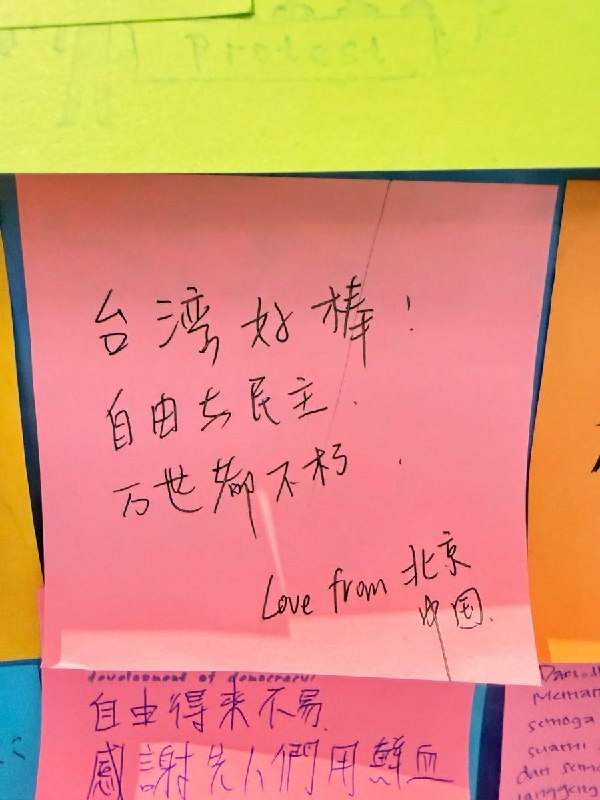 Protest
台湾好棒!
自由与民主.
万世都不朽.
Love from 北京
中国.
development of democracy
自由得来不易
感謝先人們用鮮血
semoga
suami
dan
langgeng